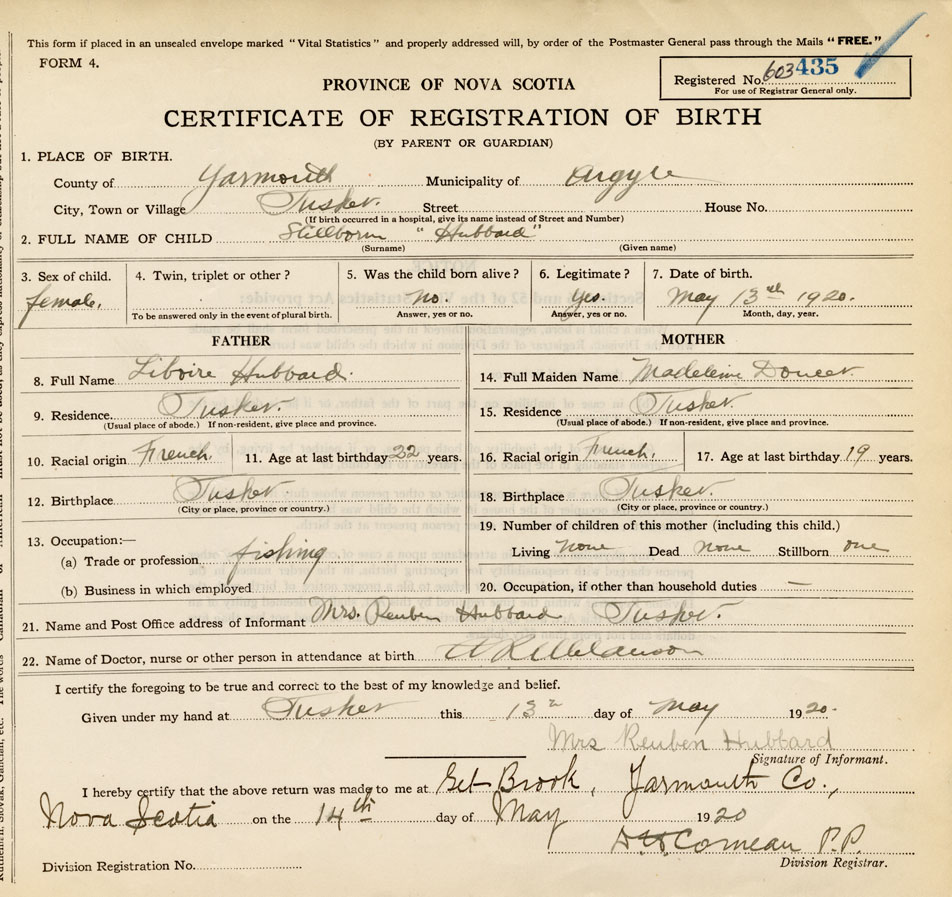 This form if placed in an unsealed envelope marked "Vital Statistics" and properly addressed will, by order of the Postmaster General pass through the Mails "FREE."
FORM 4.
Registered No. 603435
For use of Registrar General only.
PROVINCE OF NOVA SCOTIA
CERTIFICATE OF REGISTRATION OF BIRTH
(BY PARENT OR GUARDIAN)
1. PLACE OF BIRTH.
County of Yarmouth Municipality of Argyle
City, Town or Village Tusket. Street House No.
(If birth occurred in a hospital, give its name instead of Street and Number)
2. FULL NAME OF CHILD Stillborn "Hubbard"
(Surname) (Given name)
3. Sex of child. 4. Twin, triplet or other? 5. Was the child born alive? 6. Legitimate? 7. Date of birth.
female. no. yes. May 13th 1920.
To be answered only in the event of plural birth. Answer, yes or no. Answer, yes or no. Month, day, year.
FATHER
8. Full Name Liboire Hubbard.
9. Residence. Tusket.
(Usual place of abode.) If non-resident, give place and province.
10. Racial origin French. 11. Age at last birthday 22 years.
12. Birthplace Tusket
(City or place, province or country.)
13. Occupation:—
(a) Trade or profession fishing
(b) Business in which employed
MOTHER
14. Full Maiden Name Madeleine Doucet
15. Residence Tusket.
(Usual place of abode.) If non-resident, give place and province.
16. Racial origin French. 17. Age at last birthday 19 years.
18. Birthplace Tusket.
(City or place, province or country.)
19. Number of children of this mother (including this child.)
Living none Dead none Stillborn one
20. Occupation, if other than household duties —
21. Name and Post Office address of Informant Mrs. Reuben Hubbard Tusket.
22. Name of Doctor, nurse or other person in attendance at birth
I certify the foregoing to be true and correct to the best of my knowledge and belief.
Given under my hand at Tusket this 13th day of May 1920.
Mrs Reuben Hubbard
Signature of Informant.
I hereby certify that the above return was made to me at Brook, Yarmouth Co.,
Nova Scotia on the 14th day of May 1920
Comeau P.P.
Division Registrar.
Division Registration No.